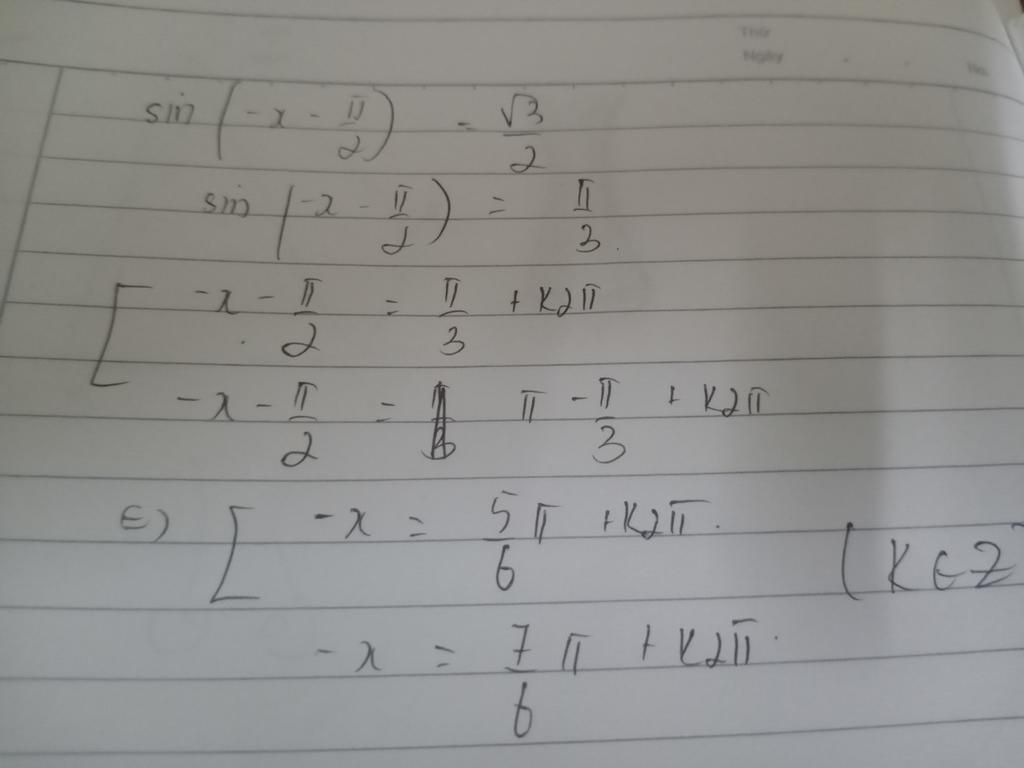 Thứ
Ngày
No.
sin(-x - π/2) = √3/2
sin(-x - π/2) = π/3.
[ -x - π/2 = π/3 + k2π
-x - π/2 = π - π/3 + k2π
⇔ [ -x = 5/6 π + k2π. (k ∈ Z
-x = 7/6 π + k2π.